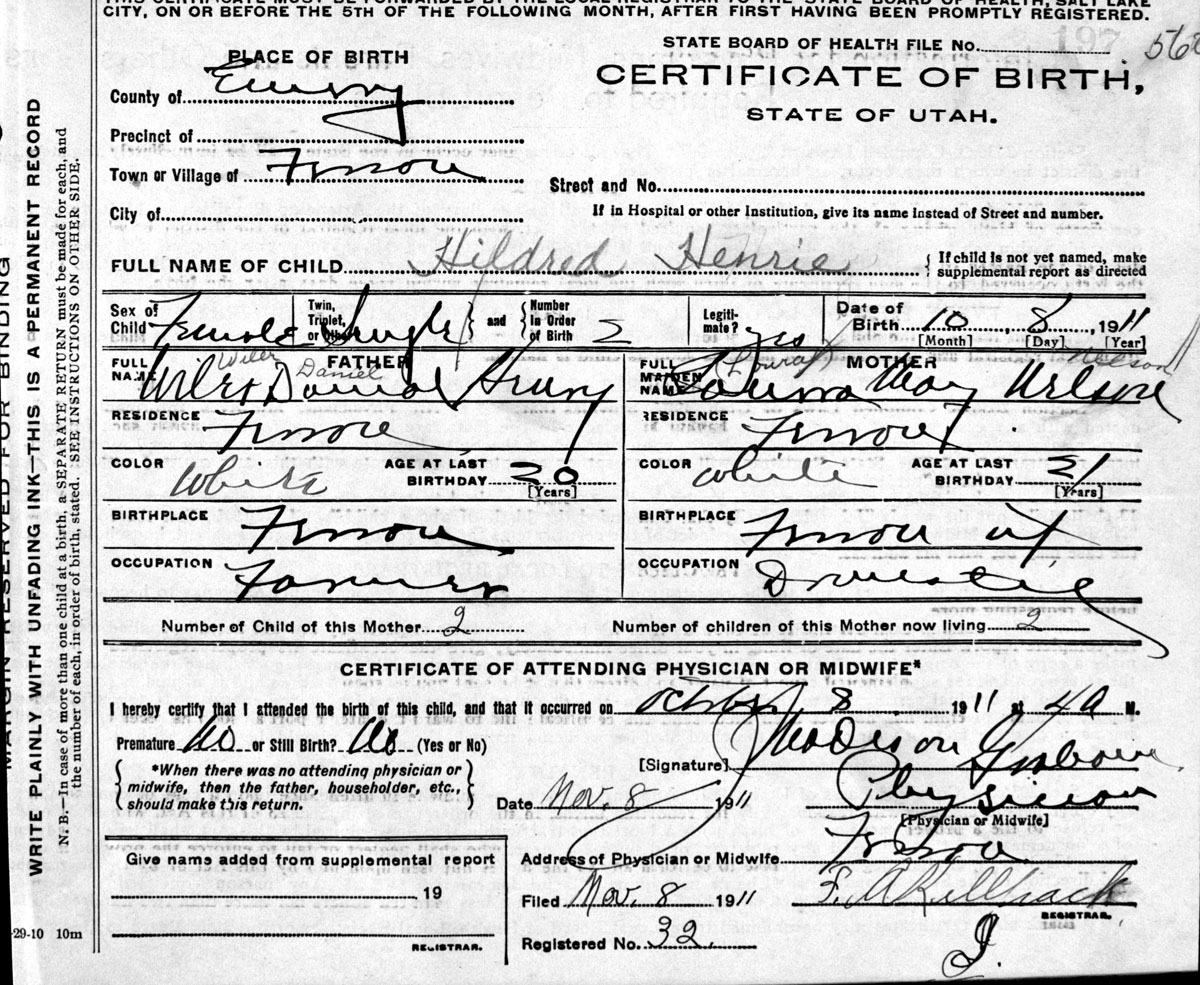 CITY, ON OR BEFORE THE 5TH OF THE FOLLOWING MONTH, AFTER FIRST HAVING BEEN PROMPTLY REGISTERED.
STATE BOARD OF HEALTH FILE No. 197 568
PLACE OF BIRTH
CERTIFICATE OF BIRTH,
County of Emery
STATE OF UTAH.
Precinct of
Town or Village of Ferron
Street and No.
City of
If in Hospital or other Institution, give its name instead of Street and number.
FULL NAME OF CHILD Hildred Henrie { If child is not yet named, make supplemental report as directed
Sex of Child Female Twin, Triplet, or Other Single } and { Number in Order of Birth 2 Legitimate? yes Date of Birth 10, 8, 1911
[Month] [Day] [Year]
FULL NAME FATHER Daniel
FULL MAIDEN NAME MOTHER May Nelson
RESIDENCE Ferron RESIDENCE Ferron
COLOR White AGE AT LAST BIRTHDAY 20 [Years] COLOR White AGE AT LAST BIRTHDAY 21 [Years]
BIRTHPLACE Ferron BIRTHPLACE Ferron Ut
OCCUPATION Farmer OCCUPATION Domestic
Number of Child of this Mother 2 Number of children of this Mother now living 2
CERTIFICATE OF ATTENDING PHYSICIAN OR MIDWIFE*
I hereby certify that I attended the birth of this child, and that it occurred on October 8, 1911 at 4 a M.
Premature No or Still Birth? No (Yes or No)
[Signature]
*When there was no attending physician or midwife, then the father, householder, etc., should make this return.
Date Nov. 8 1911 Physician
[Physician or Midwife]
Give name added from supplemental report
Address of Physician or Midwife Ferron
19
Filed Nov. 8 1911 F. A. Killpack
REGISTRAR.
Registered No. 32
REGISTRAR.
-29-10 10m
MARGIN RESERVED FOR BINDING
WRITE PLAINLY WITH UNFADING INK—THIS IS A PERMANENT RECORD
N. B.—In case of more than one child at a birth, a SEPARATE RETURN must be made for each, and
the number of each, in order of birth, stated. SEE INSTRUCTIONS ON OTHER SIDE.